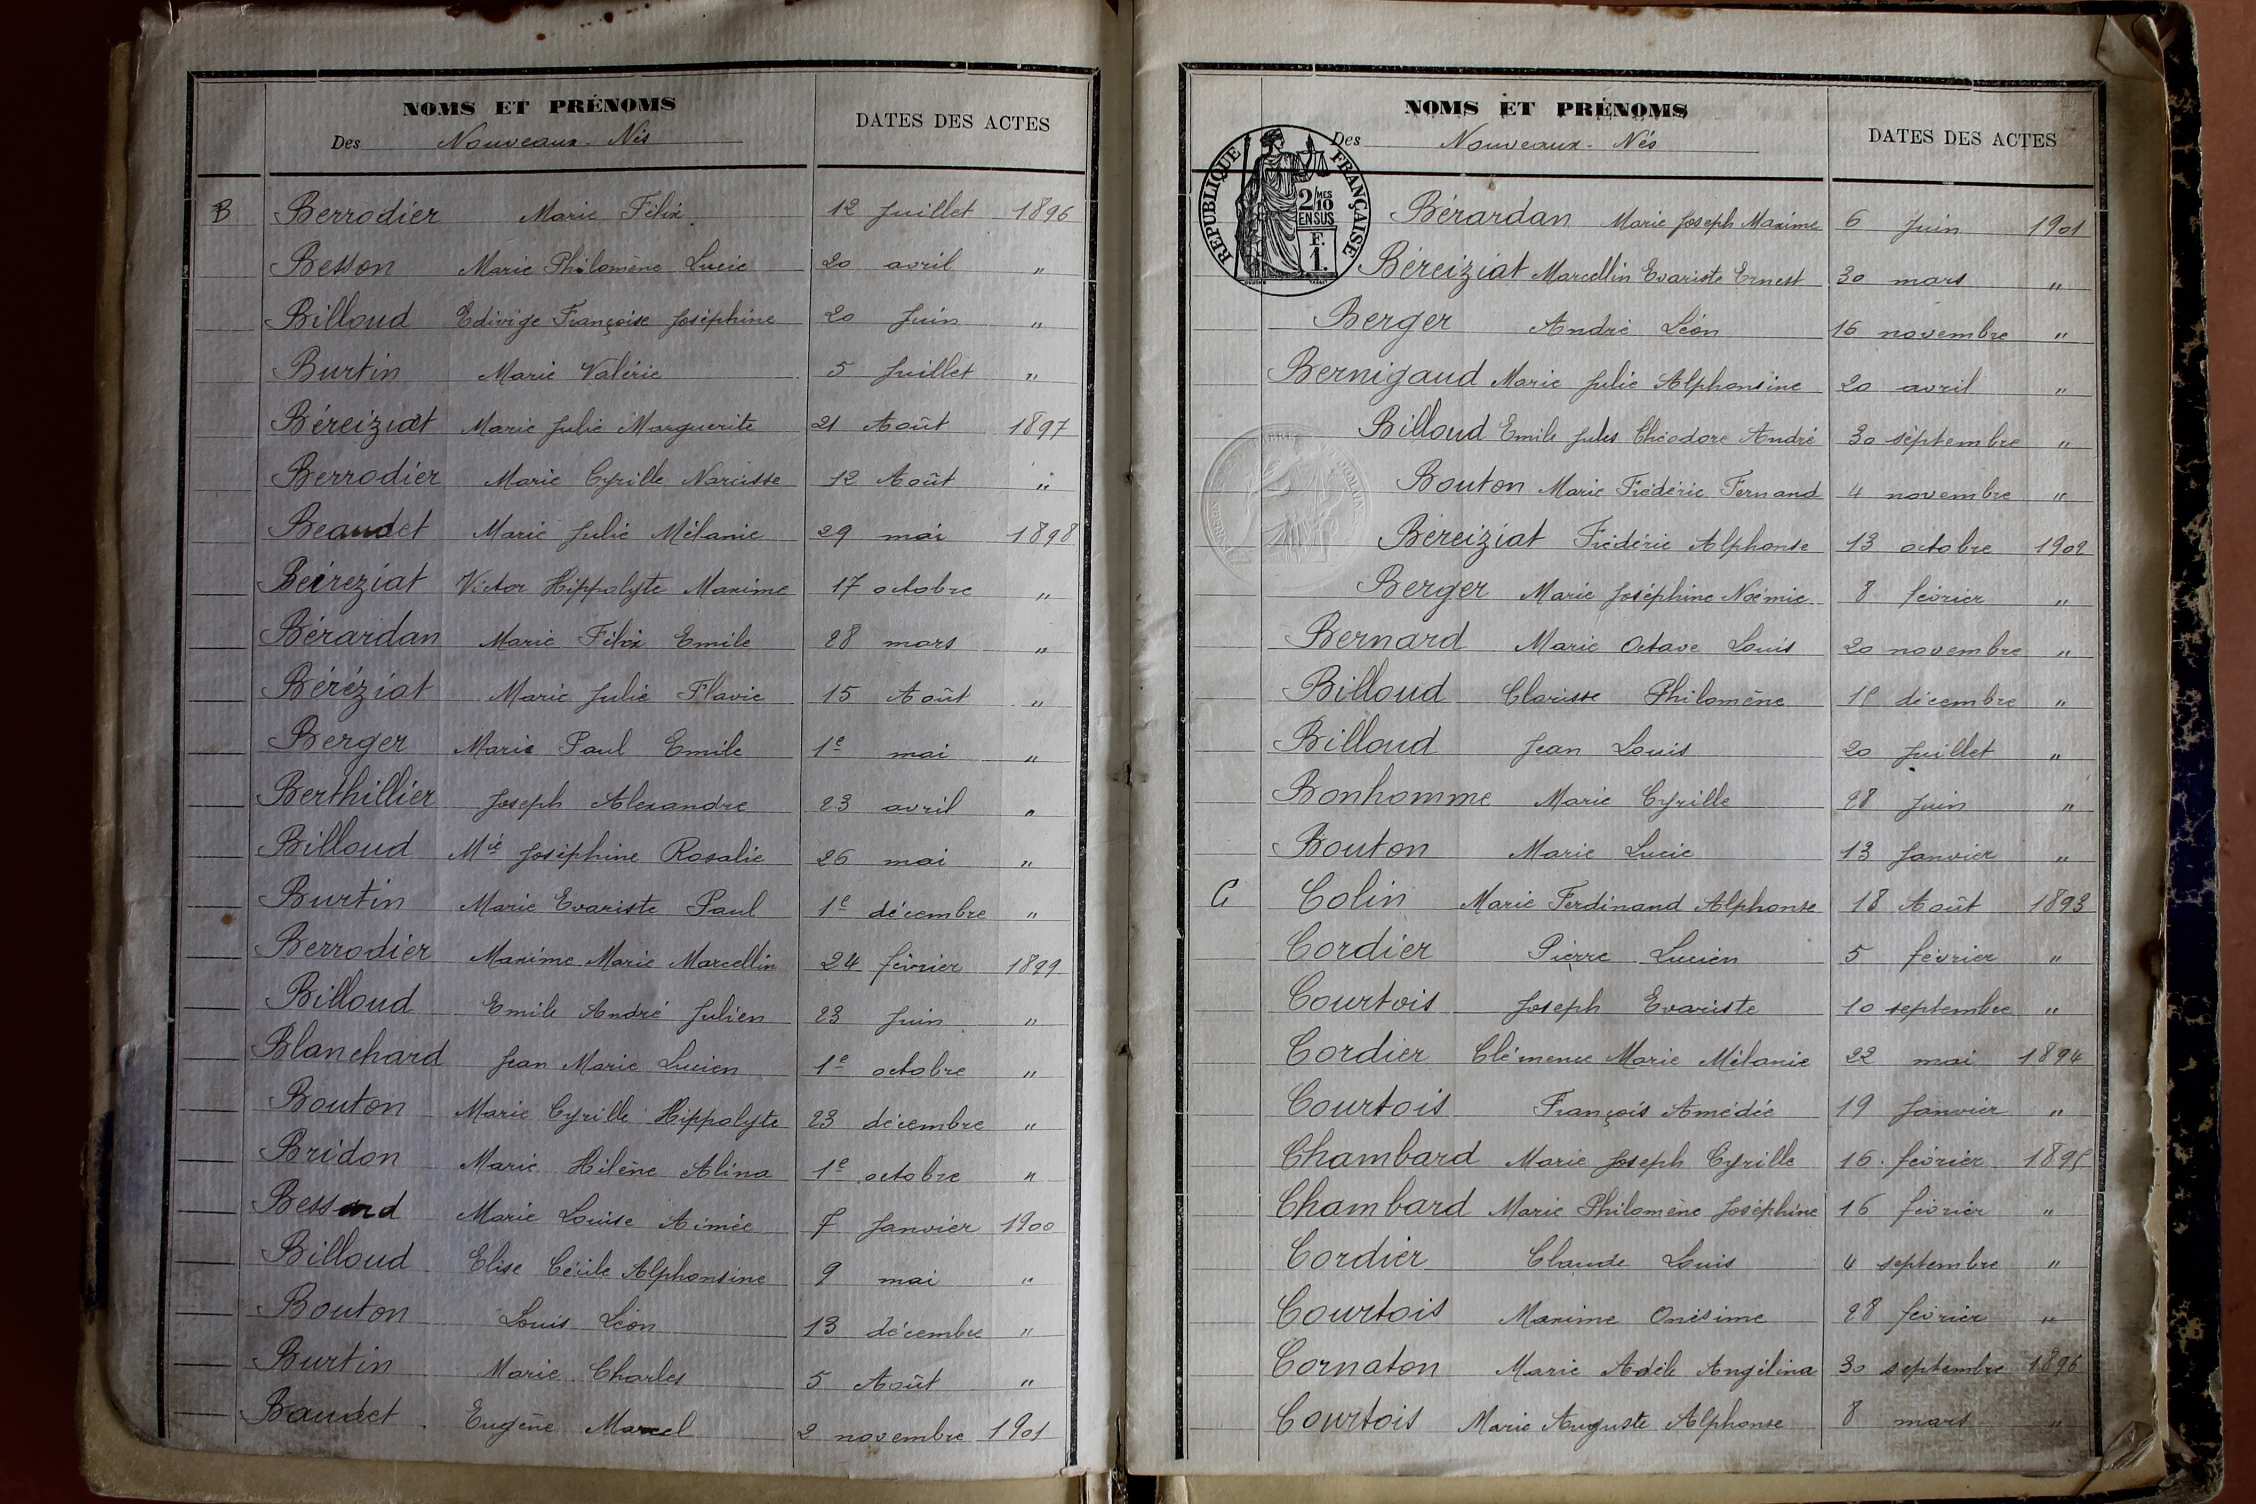 NOMS ET PRÉNOMS
Des Nouveaux-Nés
DATES DES ACTES
B Berrodier Marie Félix 12 Juillet 1896
Besson Marie Philomène Lucie 20 avril "
Billoud Edivige Françoise Joséphine 20 Juin "
Burtin Marie Valérie 5 Juillet "
Béreiziat Marie Julie Marguerite 21 Août 1897
Berrodier Marie Cyrille Narcisse 12 Août "
Beaudet Marie Julie Mélanie 29 mai 1898
Beireziat Victor Hippolyte Maxime 17 octobre "
Bérardan Marie Félix Emile 28 mars "
Béréziat Marie Julie Flavie 15 Août "
Berger Marie Paul Emile 1e mai "
Berthillier Joseph Alexandre 23 avril "
Billoud Mie Joséphine Rosalie 26 mai "
Burtin Marie Evariste Paul 1e décembre "
Berrodier Maxime Marie Marcellin 24 février 1899
Billoud Emile André Julien 23 Juin "
Blanchard Jean Marie Lucien 1e octobre "
Bouton Marie Cyrille Hippolyte 23 décembre "
Bridon Marie Hélène Alina 1e octobre "
Bessard Marie Louise Aimée 7 Janvier 1900
Billoud Elise Cécile Alphonsine 9 mai "
Bouton Louis Léon 13 décembre "
Burtin Marie Charles 5 Août "
Baudet Eugène Marcel 2 novembre 1901
NOMS ET PRÉNOMS
Des Nouveaux-Nés
DATES DES ACTES
RÉPUBLIQUE FRANÇAISE
2/10 MES
EN SUS
F.
1.
Bérardan Marie Joseph Maxime 6 Juin 1901
Béreiziat Marcellin Evariste Ernest 30 mars "
Berger André Léon 16 novembre "
Bernigaud Marie Julie Alphonsine 20 avril "
Billoud Emile Jules Théodore André 30 septembre "
Bouton Marie Frédéric Fernand 4 novembre "
Béreiziat Frédéric Alphonse 13 octobre 1902
Berger Marie Joséphine Noémie 8 février "
Bernard Marie Octave Louis 20 novembre "
Billoud Clarisse Philomène décembre "
Billoud Jean Louis 20 Juillet "
Bonhomme Marie Cyrille 28 Juin "
Bouton Marie Lucie 13 Janvier "
C Colin Marie Ferdinand Alphonse 18 Août 1893
Cordier Pierre Lucien 5 février "
Courtois Joseph Evariste 10 septembre "
Cordier Clémence Marie Mélanie 22 mai 1894
Courtois François Amédée 19 Janvier "
Chambard Marie Joseph Cyrille 16 février 1895
Chambard Marie Philomène Joséphine 16 février "
Cordier Claude Louis 4 septembre "
Courtois Maxime Onésime 28 février "
Cornaton Marie Adèle Angélina 30 septembre 1896
Courtois Marie Auguste Alphonse 8 mars "